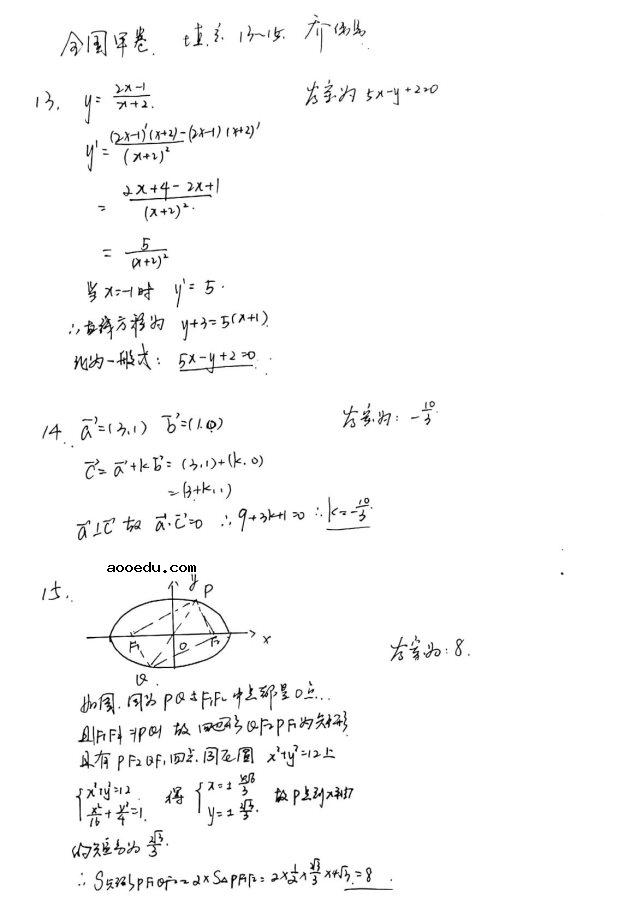 全国甲卷 填空 13~15
13. y = \frac{2x-1}{x+2} 答案为 5x-y+2=0
y' = \frac{(2x-1)'(x+2)-(2x-1)(x+2)'}{(x+2)^2}
= \frac{2x+4-2x+1}{(x+2)^2}
= \frac{5}{(x+2)^2}
当 x=-1时 y'=5.
∴直线方程为 y+3=5(x+1)
化为一般式: 5x-y+2=0
14. \vec{a}=(3,1) \vec{b}=(1,0) 答案为: -\frac{10}{3}
\vec{c}=\vec{a}+k\vec{b}=(3,1)+(k,0)
=(3+k,1)
\vec{a}⊥\vec{c} 故 \vec{a}·\vec{c}=0 ∴9+3k+1=0 ∴k=-\frac{10}{3}
aooedu.com
15. y P
F₁ O F₂ x
Q 答案为:8.
如图,因为 PQ与F₁F₂中点都是O点
且|F₁F₂|=|PQ| 故 四边形QF₂PF₁为矩形
且有 PF₂QF₁四点 同在圆 x²+y²=12上
{x²+y²=12 \frac{x²}{16}+\frac{y²}{4}=1. 得 {x=± y=±\frac{2\sqrt{3}}{3}. 故P点到x轴
的距离为 \frac{2\sqrt{3}}{3}.
∴S矩形PF₁QF₂=2×S△PF₁F₂=2×\frac{1}{2}×\frac{2\sqrt{3}}{3}×4\sqrt{3}=8